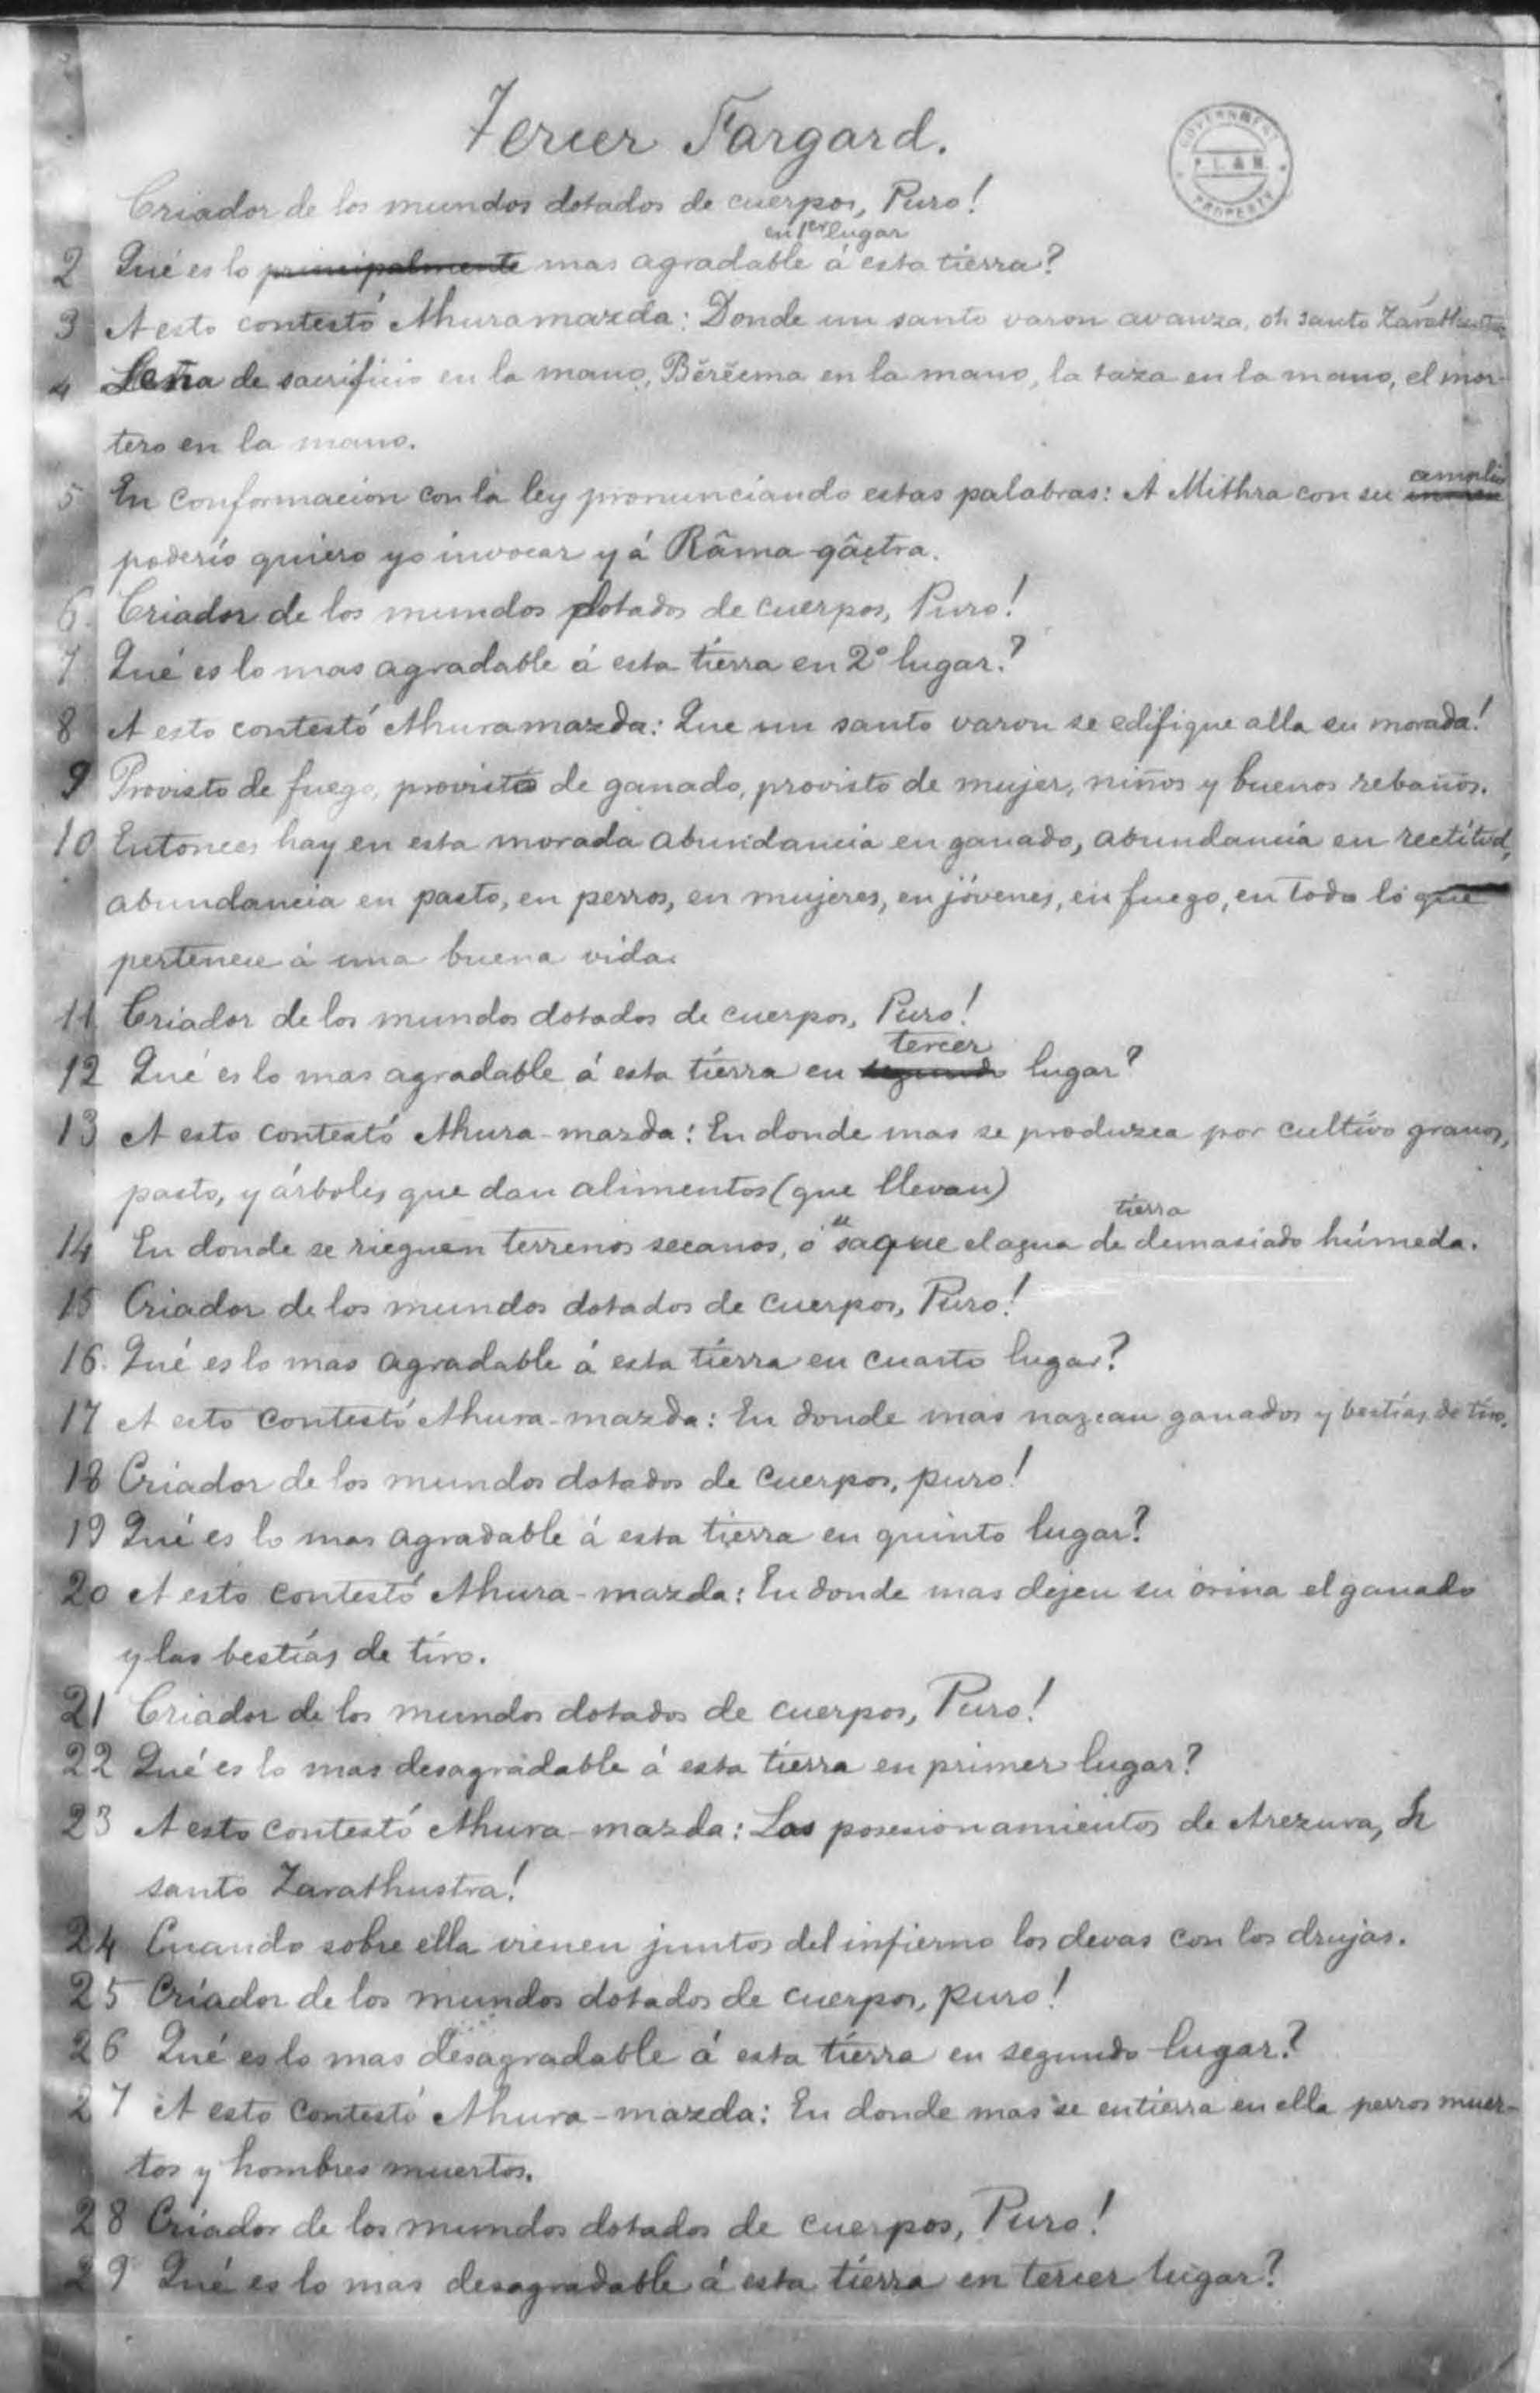 Tercer Fargard.
GOVERNMENT PROPERTY
Criador de los mundos dotados de cuerpos, Puro!
en 1er lugar
2 Qué es lo principalmente mas agradable á esta tierra?
3 A esto contestó Ahuramazda: Donde un santo varon avanza, oh santo Zarathustra
4 Leña de sacrificio en la mano, Běrěçma en la mano, la taza en la mano, el mor-
tero en la mano.
amplio
5 En conformacion con la ley pronunciando estas palabras: A Mithra con su
poderío quiero yo invocar y á Râma-qâçtra.
6. Criador de los mundos dotados de cuerpos, Puro!
7. Qué es lo mas agradable á esta tierra en 2º lugar?
8 A esto contestó Ahuramazda: Que un santo varon se edifique alla su morada!
9 Provisto de fuego, provisto de ganado, provisto de mujer, niños y buenos rebaños.
10 Entonces hay en esta morada abundancia en ganado, abundancia en rectitud,
abundancia en pasto, en perros, en mujeres, en jóvenes, en fuego, en todo lo que
pertenece á una buena vida.
11 Criador de los mundos dotados de cuerpos, Puro!
tercer
12 Qué es lo mas agradable á esta tierra en segundo lugar?
13 A esto contestó Ahura-mazda: En donde mas se produzca por cultivo granos,
pasto, y árboles que dan alimentos (que llevan)
se tierra
14 En donde se rieguen terrenos secanos, ó saque el agua de demasiado húmeda.
15 Criador de los mundos dotados de cuerpos, Puro!
16. Qué es lo mas agradable á esta tierra en cuarto lugar?
17 A esto contestó Ahura-mazda: En donde mas nazcan ganados y bestias de tiro.
18 Criador de los mundos dotados de cuerpos, puro!
19 Qué es lo mas agradable á esta tierra en quinto lugar?
20 A esto contestó Ahura-mazda: En donde mas dejen su orina el ganado
y las bestias de tiro.
21 Criador de los mundos dotados de cuerpos, Puro!
22 Qué es lo mas desagradable á esta tierra en primer lugar?
23 A esto contestó Ahura-mazda: Los posesionamientos de Arezura, oh
santo Zarathustra!
24 Cuando sobre ella vienen juntos del infierno los devas con los drujas.
25 Criador de los mundos dotados de cuerpos, puro!
26 Qué es lo mas desagradable á esta tierra en segundo lugar?
27 A esto contestó Ahura-mazda: En donde mas se entierra en ella perros muer-
tos y hombres muertos.
28 Criador de los mundos dotados de cuerpos, Puro!
29 Qué es lo mas desagradable á esta tierra en tercer lugar?